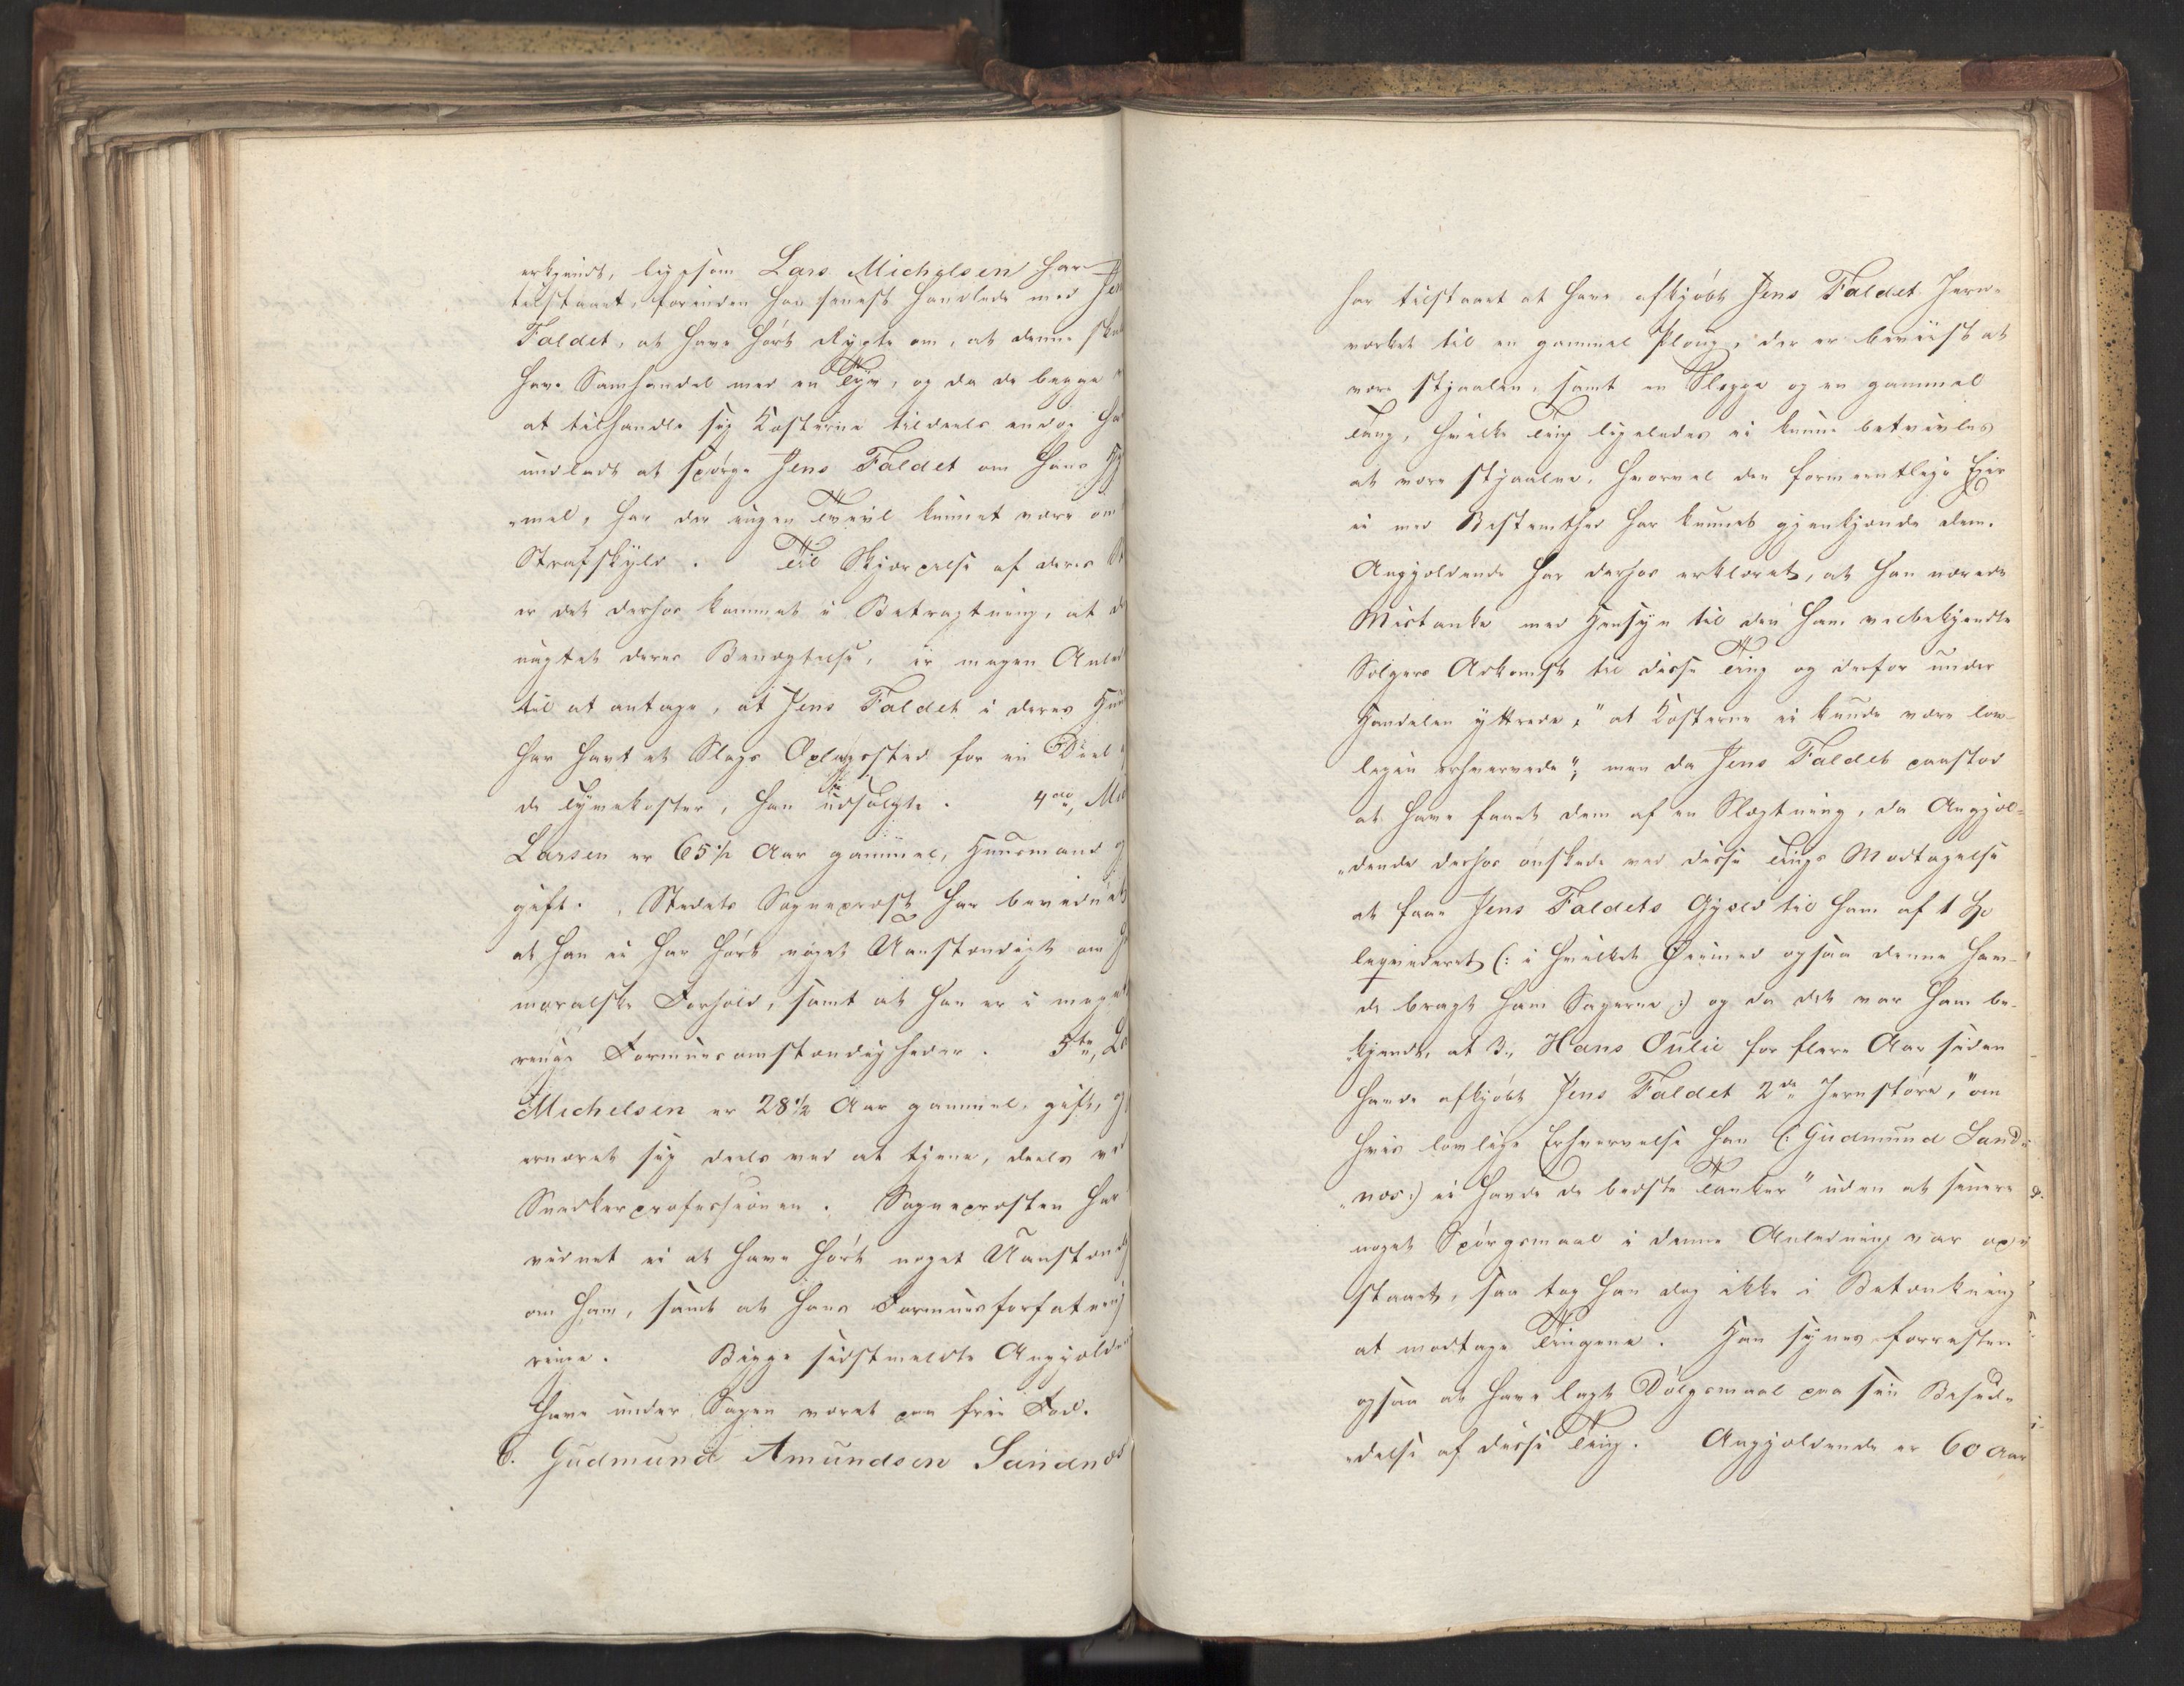 erkjendt, ligesom Lars Michelsen har
tilstaaet, forinden han senest handlede med Jen
Faldet, at have hørt Rygte om, at denne skul
have Samhandel med en Tyv, og da de begge
at tilhandle sig Kosterne tildeels endog ha
undladt at spørge Jens Faldet om hans Hj
-mel, har der ingen Tvivl kunnet være om
Strafskyld. Til Skjærpelse af deres St
er det derhos kommet i Betragtning, at d
uagtet deres Benægtelse, er megen Anled
til at antage, at Jens Faldet i deres Huu
har havt et Slags Oplagssted for en Deel
de Tyvekoster, han udsolgte. 4do, Mic
Larsen er 65 1/2 Aar gammel, Huusmand og
gift. Stedets Sogneprest har bevidnet
at han ei har hørt noget Uanstændigt om h
moralske Forhold, samt at han er i meget
ringe Formuesomstændigheder. 5te, La
Michelsen er 28 1/2 Aar gammel, gift, og
ernæret sig deels ved at tjene, deels ve
Snedkerprofessionen. Sognepresten har
vidnet ei at have hørt noget Uanstænd
om ham, samt at hans Formuesforfatning
ringe. Begge sidstmeldte Angjælde
have under Sagen været paa frie Fod.
6. Gudmund Amundsen Sandnæs
har tilstaaet at have afkjøbt Jens Faldet Jern-
værket til en gammel Ploug, der er beviist at
være stjaalen, samt en Slægge og en gammel
Tang, hvilke Ting ligeledes ei kunne betvivles
at være stjaalne, hvorvel den formeentlige Eier
ei med Bestemthed har kunnet gjenkjende dem.
Angjældende har derhos erklæret, at han nærede
Mistanke med Hensyn til den ham velbekjendte
Sælgers Adkomst til disse Ting og derfor under
Handelen yttrede, "at Kosterne ei kunde være lov-
ligen erhvervede", men da Jens Faldet paastod
at have faaet dem af en Slægtning, da Angjæl-
-dende derhos ønskede ved disse Tings Modtagelse
at faae Jens Faldets Gjæld til ham af 1 Sp
liqvideret (: i hvilket Øiemed ogsaa denne hav-
de bragt ham Sagerne :) og da det var ham be-
-kjendt, at 3., Hans Oulie for flere Aar siden
havde afkjøbt Jens Faldet 2de Jernstøre, "om
hvis lovlige Erhvervelse han (: Gudmund Sand-
-næs :) ei havde de bedste Tanker" uden at senere
noget Spørgsmaal i denne Anledning var op-
staaet, saa tog han dog ikke i Betænkning
at modtage Tingene. Han synes forresten
ogsaa at have lagt Dølgsmaal paa sin Besid-
-delse af disse Ting. Angjældende er 60 Aar